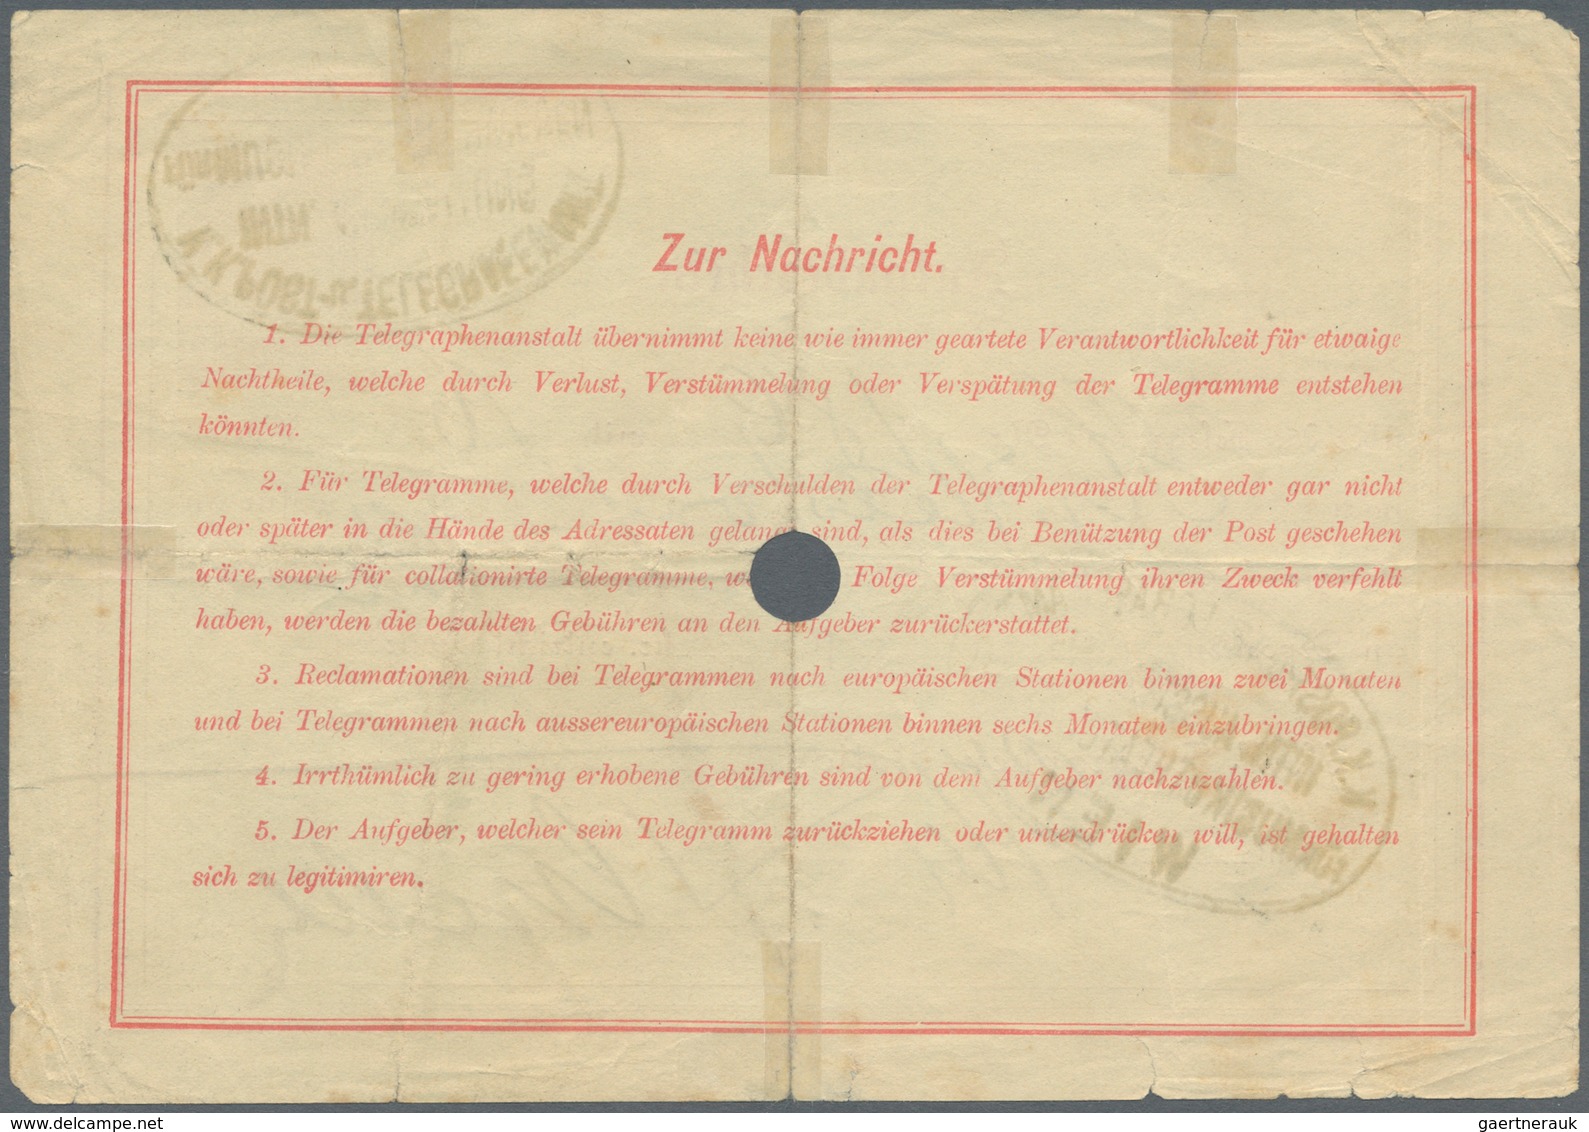 Zur Nachricht.
1. Die Telegraphenanstalt übernimmt keine wie immer geartete Verantwortlichkeit für etwaige
Nachtheile, welche durch Verlust, Verstümmelung oder Verspätung der Telegramme entstehen
könnten.
2. Für Telegramme, welche durch Verschulden der Telegraphenanstalt entweder gar nicht
oder später in die Hände des Adressaten gelangt sind, als dies bei Benützung der Post geschehen
wäre, sowie für collationirte Telegramme, Folge Verstümmelung ihren Zweck verfehlt
haben, werden die bezahlten Gebühren an den Aufgeber zurückerstattet.
3. Reclamationen sind bei Telegrammen nach europäischen Stationen binnen zwei Monaten
und bei Telegrammen nach aussereuropäischen Stationen binnen sechs Monaten einzubringen.
4. Irrthümlich zu gering erhobene Gebühren sind von dem Aufgeber nachzuzahlen.
5. Der Aufgeber, welcher sein Telegramm zurückziehen oder unterdrücken will, ist gehalten
sich zu legitimiren.
gaertnerauk